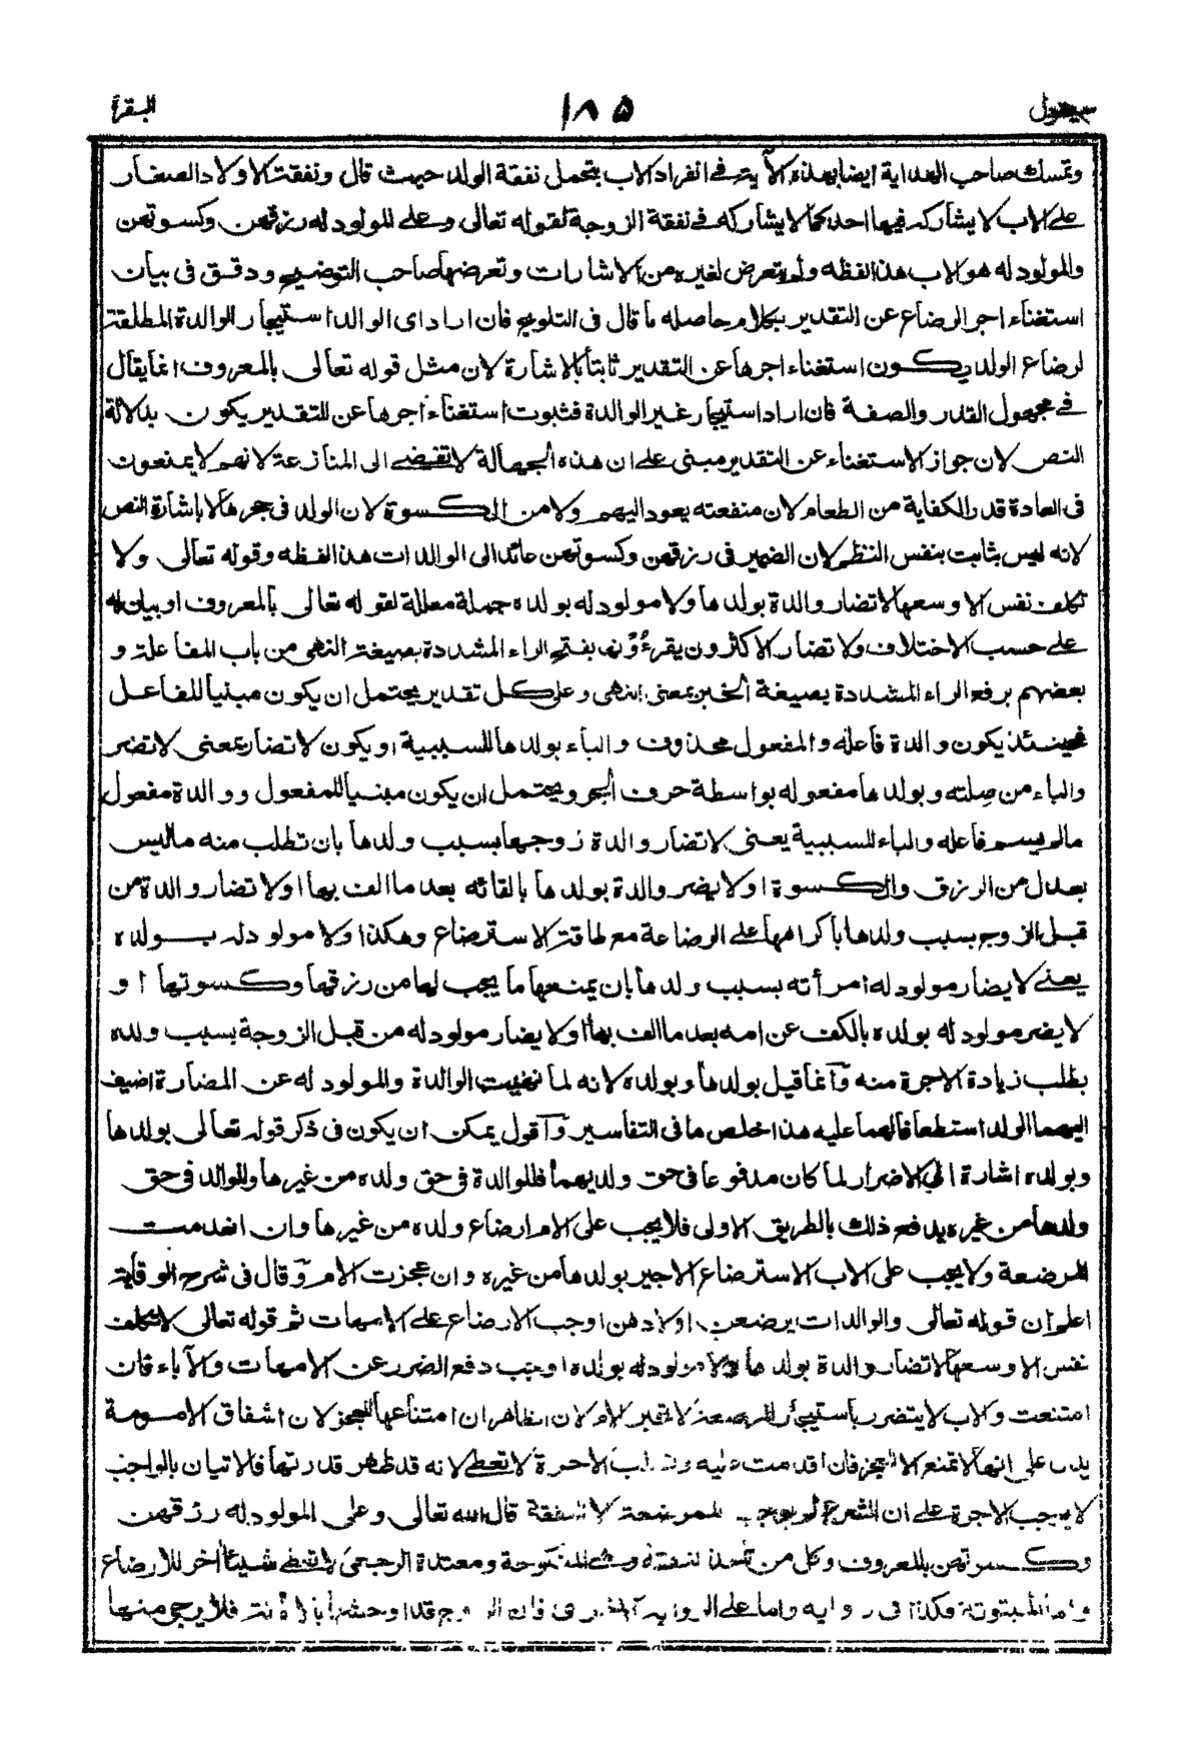 سيقول ١٨٥ البقرة
وتمسك صاحب الهداية ايضا بهذه الآية في انفراد الاب بتحمل نفقة الولد حيث قال ونفقة الاولاد الصغار
على الاب لا يشاركه فيها احد كما لا يشاركه في نفقة الزوجة لقوله تعالى وعلى المولود له رزقهن وكسوتهن
والمولود له هو الاب هذا لفظه ولم يتعرض لغيره من الاشارات وتعرضها صاحب التوضيح ودقق فى بيان
استغناء اجر الرضاع عن التقدير بكلام حاصله ما قال فى التلويح فان اراد اى الوالد استيجار الوالدة المطلقة
لرضاع الولد يكون استغناء اجرها عن التقدير ثابتا بالاشارة لان مثل قوله تعالى بالمعروف انما يقال
في مجهول القدر والصفة فان اراد استيجار غير الوالدة فثبوت استغناء اجرها عن التقدير يكون بدلالة
النص لان جواز الاستغناء عن التقدير مبنى على ان هذه الجهالة لا تفضى الى المنازعة لانهم لا يمنعون
فى العادة قدر الكفاية من الطعام لان منفعته يعود اليهم ولا من الكسوة لان الولد فى حجرها لا باشارة النص
لانه ليس بثابت بنفس النظم لان الضمير فى رزقهن وكسوتهن عائد الى الوالدات هذا لفظه وقوله تعالى ولا
تكلف نفس الا وسعها لا تضار والدة بولدها ولا مولود له بولده جملة معللة لقوله تعالى بالمعروف او بيان له
على حسب الاختلاف ولا تضار الاكثرون يقرءونه بفتح الراء المشددة بصيغة النهى من باب المفاعلة و
بعضهم برفع الراء المشددة بصيغة الخبر بمعنى النهى وعلى كل تقدير يحتمل ان يكون مبنيا للفاعل
فحينئذ يكون والدة فاعله والمفعول محذوف والباء بولدها للسببية او يكون لا تضار بمعنى لا تضر
والباء من صلته وبولدها مفعوله بواسطة حرف الجر ويحتمل ان يكون مبنيا للمفعول ووالدة مفعول
مالم يسم فاعله والباء للسببية يعنى لا تضار والدة زوجها بسبب ولدها بان تطلب منه ماليس
بعدل من الرزق والكسوة او لا يضر والدة بولدها بالقائه بعد ما الف بها او لا تضار والدة من
قبل الزوج بسبب ولدها باكراهها على الرضاعة مع طاقة الاسترضاع وهكذا ولا مولود له بولده
يعنى لا يضار مولود له امرأته بسبب ولدها بان يمنعها ما يجب لها من رزقها وكسوتها او
لا يضر مولود له بولده بالكف عن امه بعد ما الف بها او لا يضار مولود له من قبل الزوجة بسبب ولده
بطلب زيادة الاجرة منه وانما قيل بولدها وبولده لانه لما نهيت الوالدة والمولود له عن المضارة اضيف
اليهما الولد استعطافا لهما عليه هذا خلص ما فى التفاسير واقول يمكن ان يكون فى ذكر قوله تعالى بولدها
وبولده اشارة الى الاضرار لما كان مدفوعا فى حق ولديهما فللوالدة فى حق ولده من غيرها وللوالد فى حق
ولدها من غيره يدفع ذلك بالطريق الاولى فلا يجب على الام ارضاع ولده من غيرها وان انعدمت
المرضعة ولا يجب على الاب الاسترضاع الاجير بولدها من غيره وان عجزت الام وقال فى شرح الوقاية
اعلم ان قوله تعالى والوالدات يرضعن اولادهن اوجب الارضاع على الامهات ثم قوله تعالى لا تكلف
نفس الا وسعها لا تضار والدة بولدها ولا مولود له بولده اوجب دفع الضرر عن الامهات والآباء فان
امتنعت والاب لا يتضرر باستيجار المرضعة لا تجبر الام لان الظاهر ان امتناعها للعجز لان اشفاق الامومة
يدل على انها لا تمنع الا للعجز فان اقدمت عليه وتطلب الاجرة لا تعطى لانه قد ظهر قدرتها فالاتيان بالواجب
لا يوجب الاجرة على ان الشرع لم يوجب للمرضعة الا النفقة قال الله تعالى وعلى المولود له رزقهن
وكسوتهن بالمعروف وكل من تأخذ النفقة وهى المنكوحة ومعتدة الرجعى لا تعطى شيئا آخر للارضاع
واما المبتوتة فكذا فى رواية واما على الرواية الاخرى فان الزوج قد اوحشها فلا يرجى منها